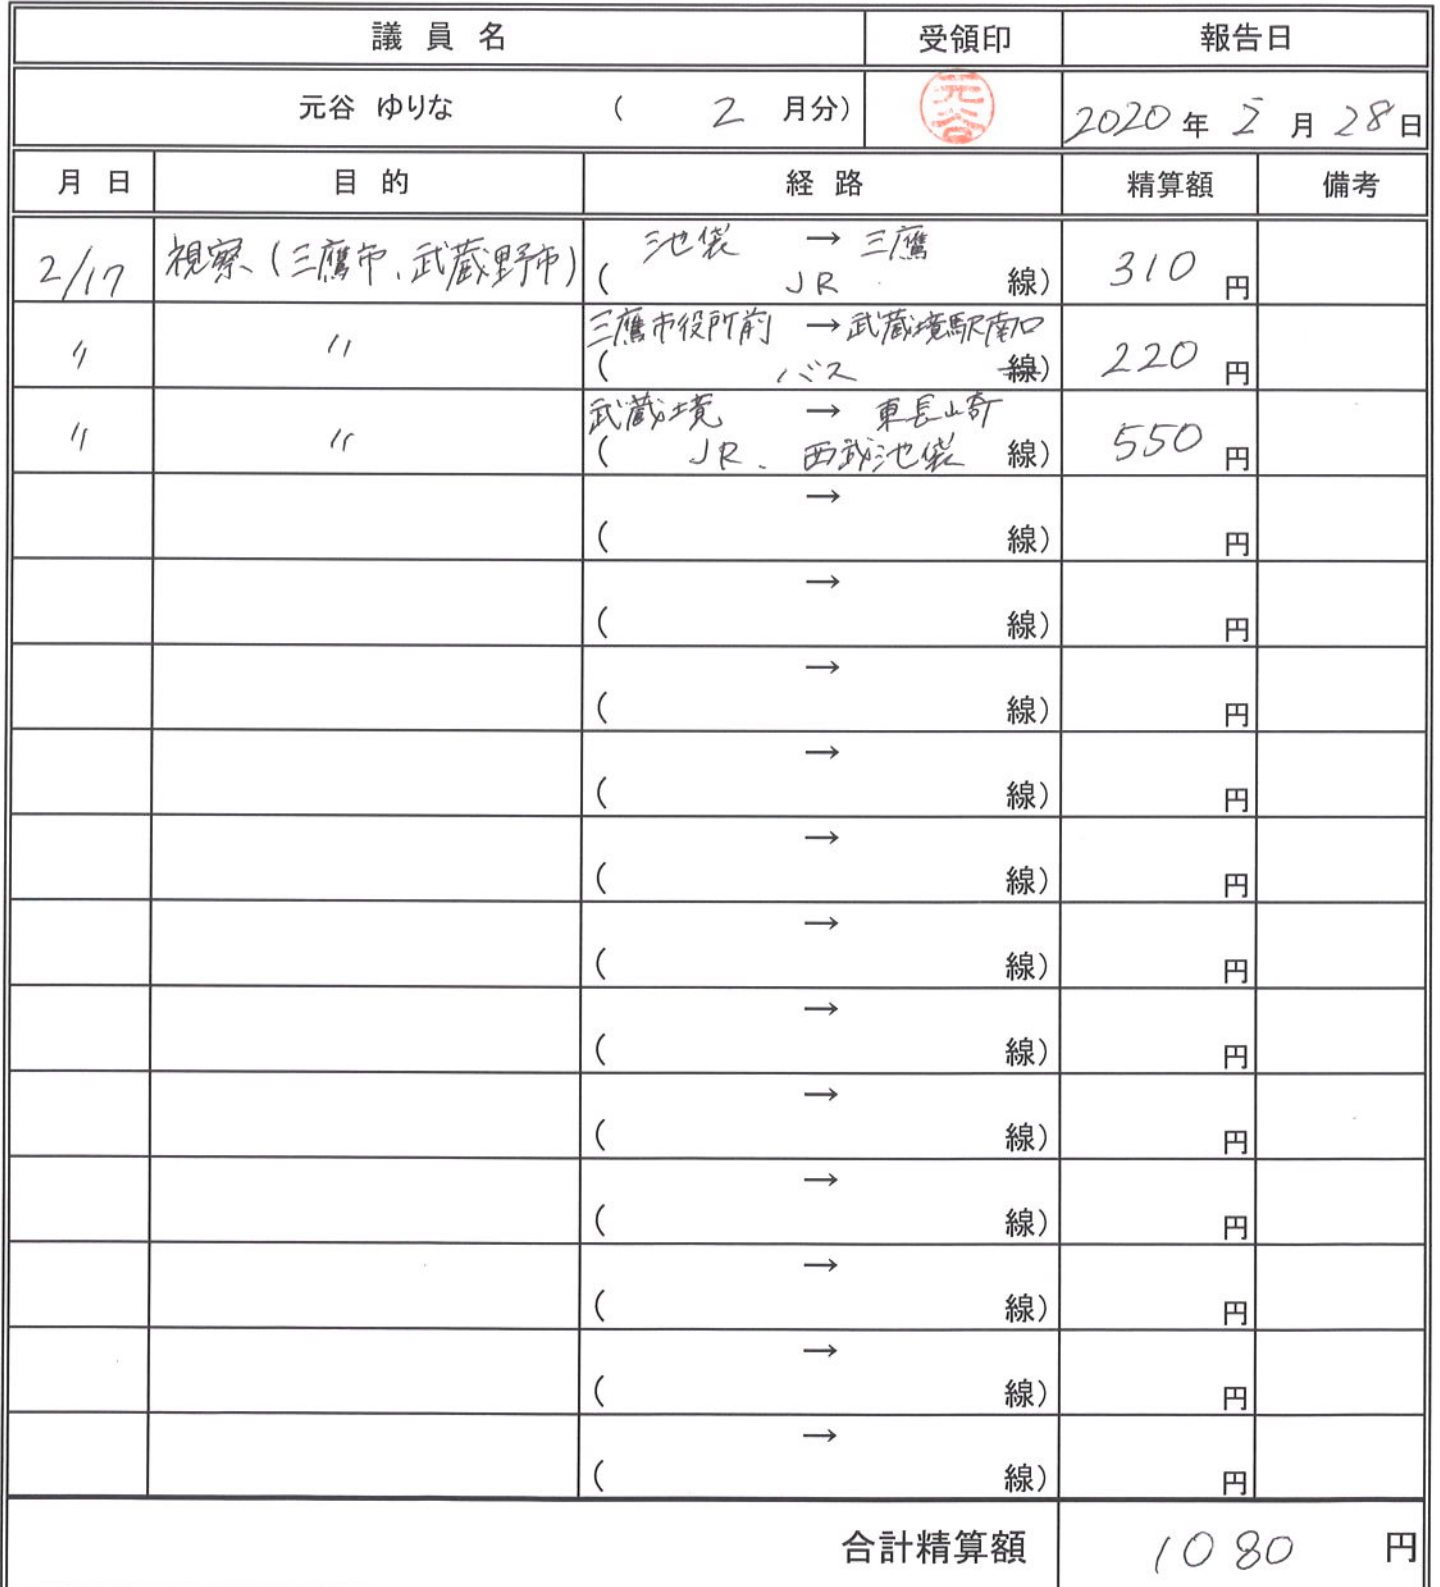 議 員 名 受領印 報告日
元谷 ゆりな ( 2 月分) 元谷 2020 年 2 月 28 日
月 日 目 的 経 路 精算額 備考
2/17 視察(三鷹市、武蔵野市) 池袋 → 三鷹
( JR 線) 310 円
〃 〃 三鷹市役所前 → 武蔵境駅南口
( バス 線) 220 円
〃 〃 武蔵境 → 東長崎
( JR、西武池袋 線) 550 円
→
( 線) 円
→
( 線) 円
→
( 線) 円
→
( 線) 円
→
( 線) 円
→
( 線) 円
→
( 線) 円
→
( 線) 円
→
( 線) 円
→
( 線) 円
→
( 線) 円
→
( 線) 円
合計精算額 1080 円